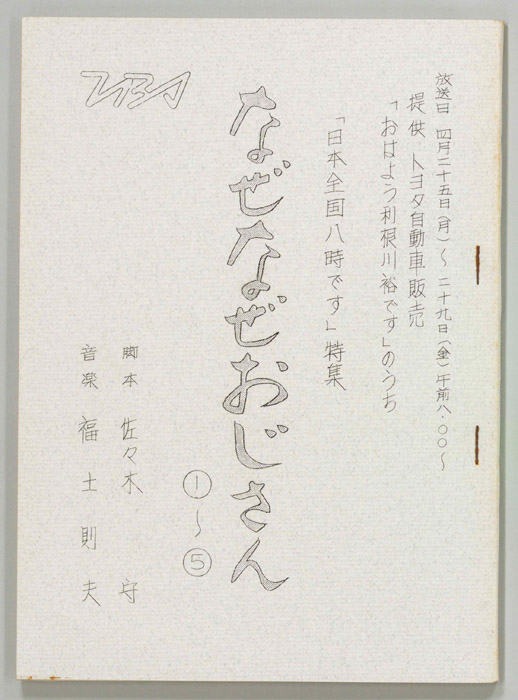 放送日 四月二十五日(月)～二十九日(金)午前八・〇〇～
提供 トヨタ自動車販売
「おはよう利根川裕です」のうち
「日本全国八時です」特集
なぜなぜおじさん
①～⑤
脚本 佐々木 守
音楽 福士則夫